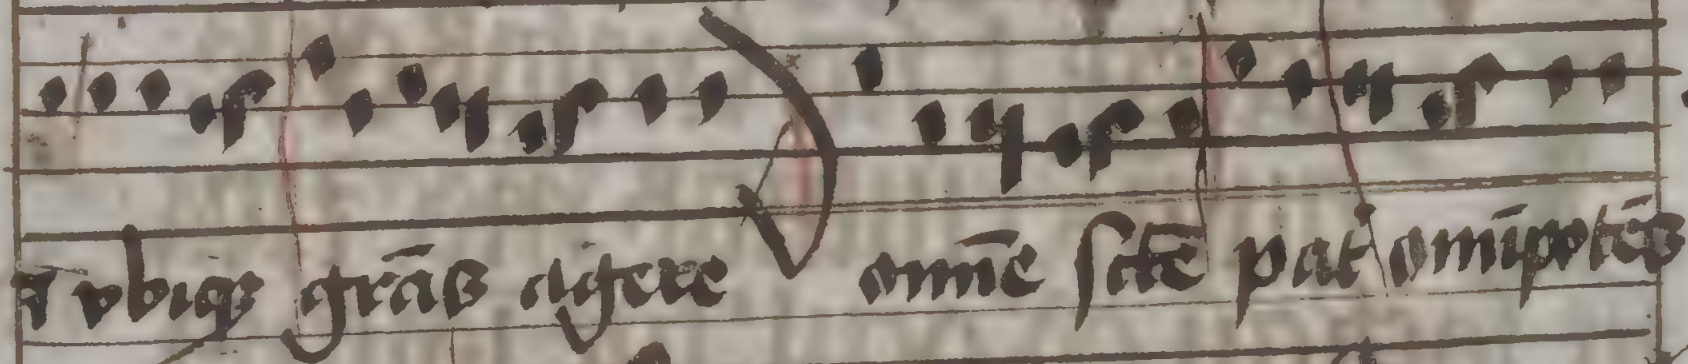 ⁊ vbiqꝫ grãs agere Domĩe sctẽ pat omĩpotẽs